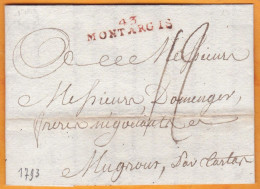 43
MONTARGIS
Messieurs
Messieurs Domenger,
frères négociants
Mugron, par Tartas
1793